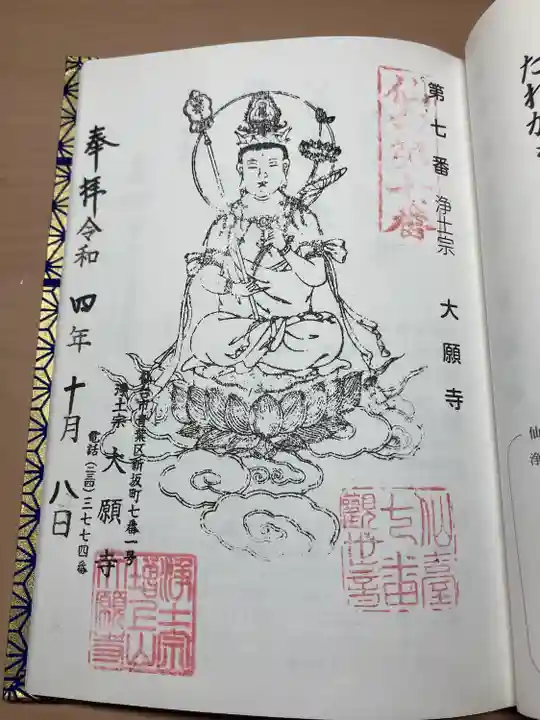 たれか
第七番 浄土宗 大願寺
仙台
七番
觀世音
仙台市青葉区新坂町七番一号
浄土宗 大願寺
電話(二三四)三七七四番
浄土宗
大願寺
奉拝 令和四年十月八日
仙
浄